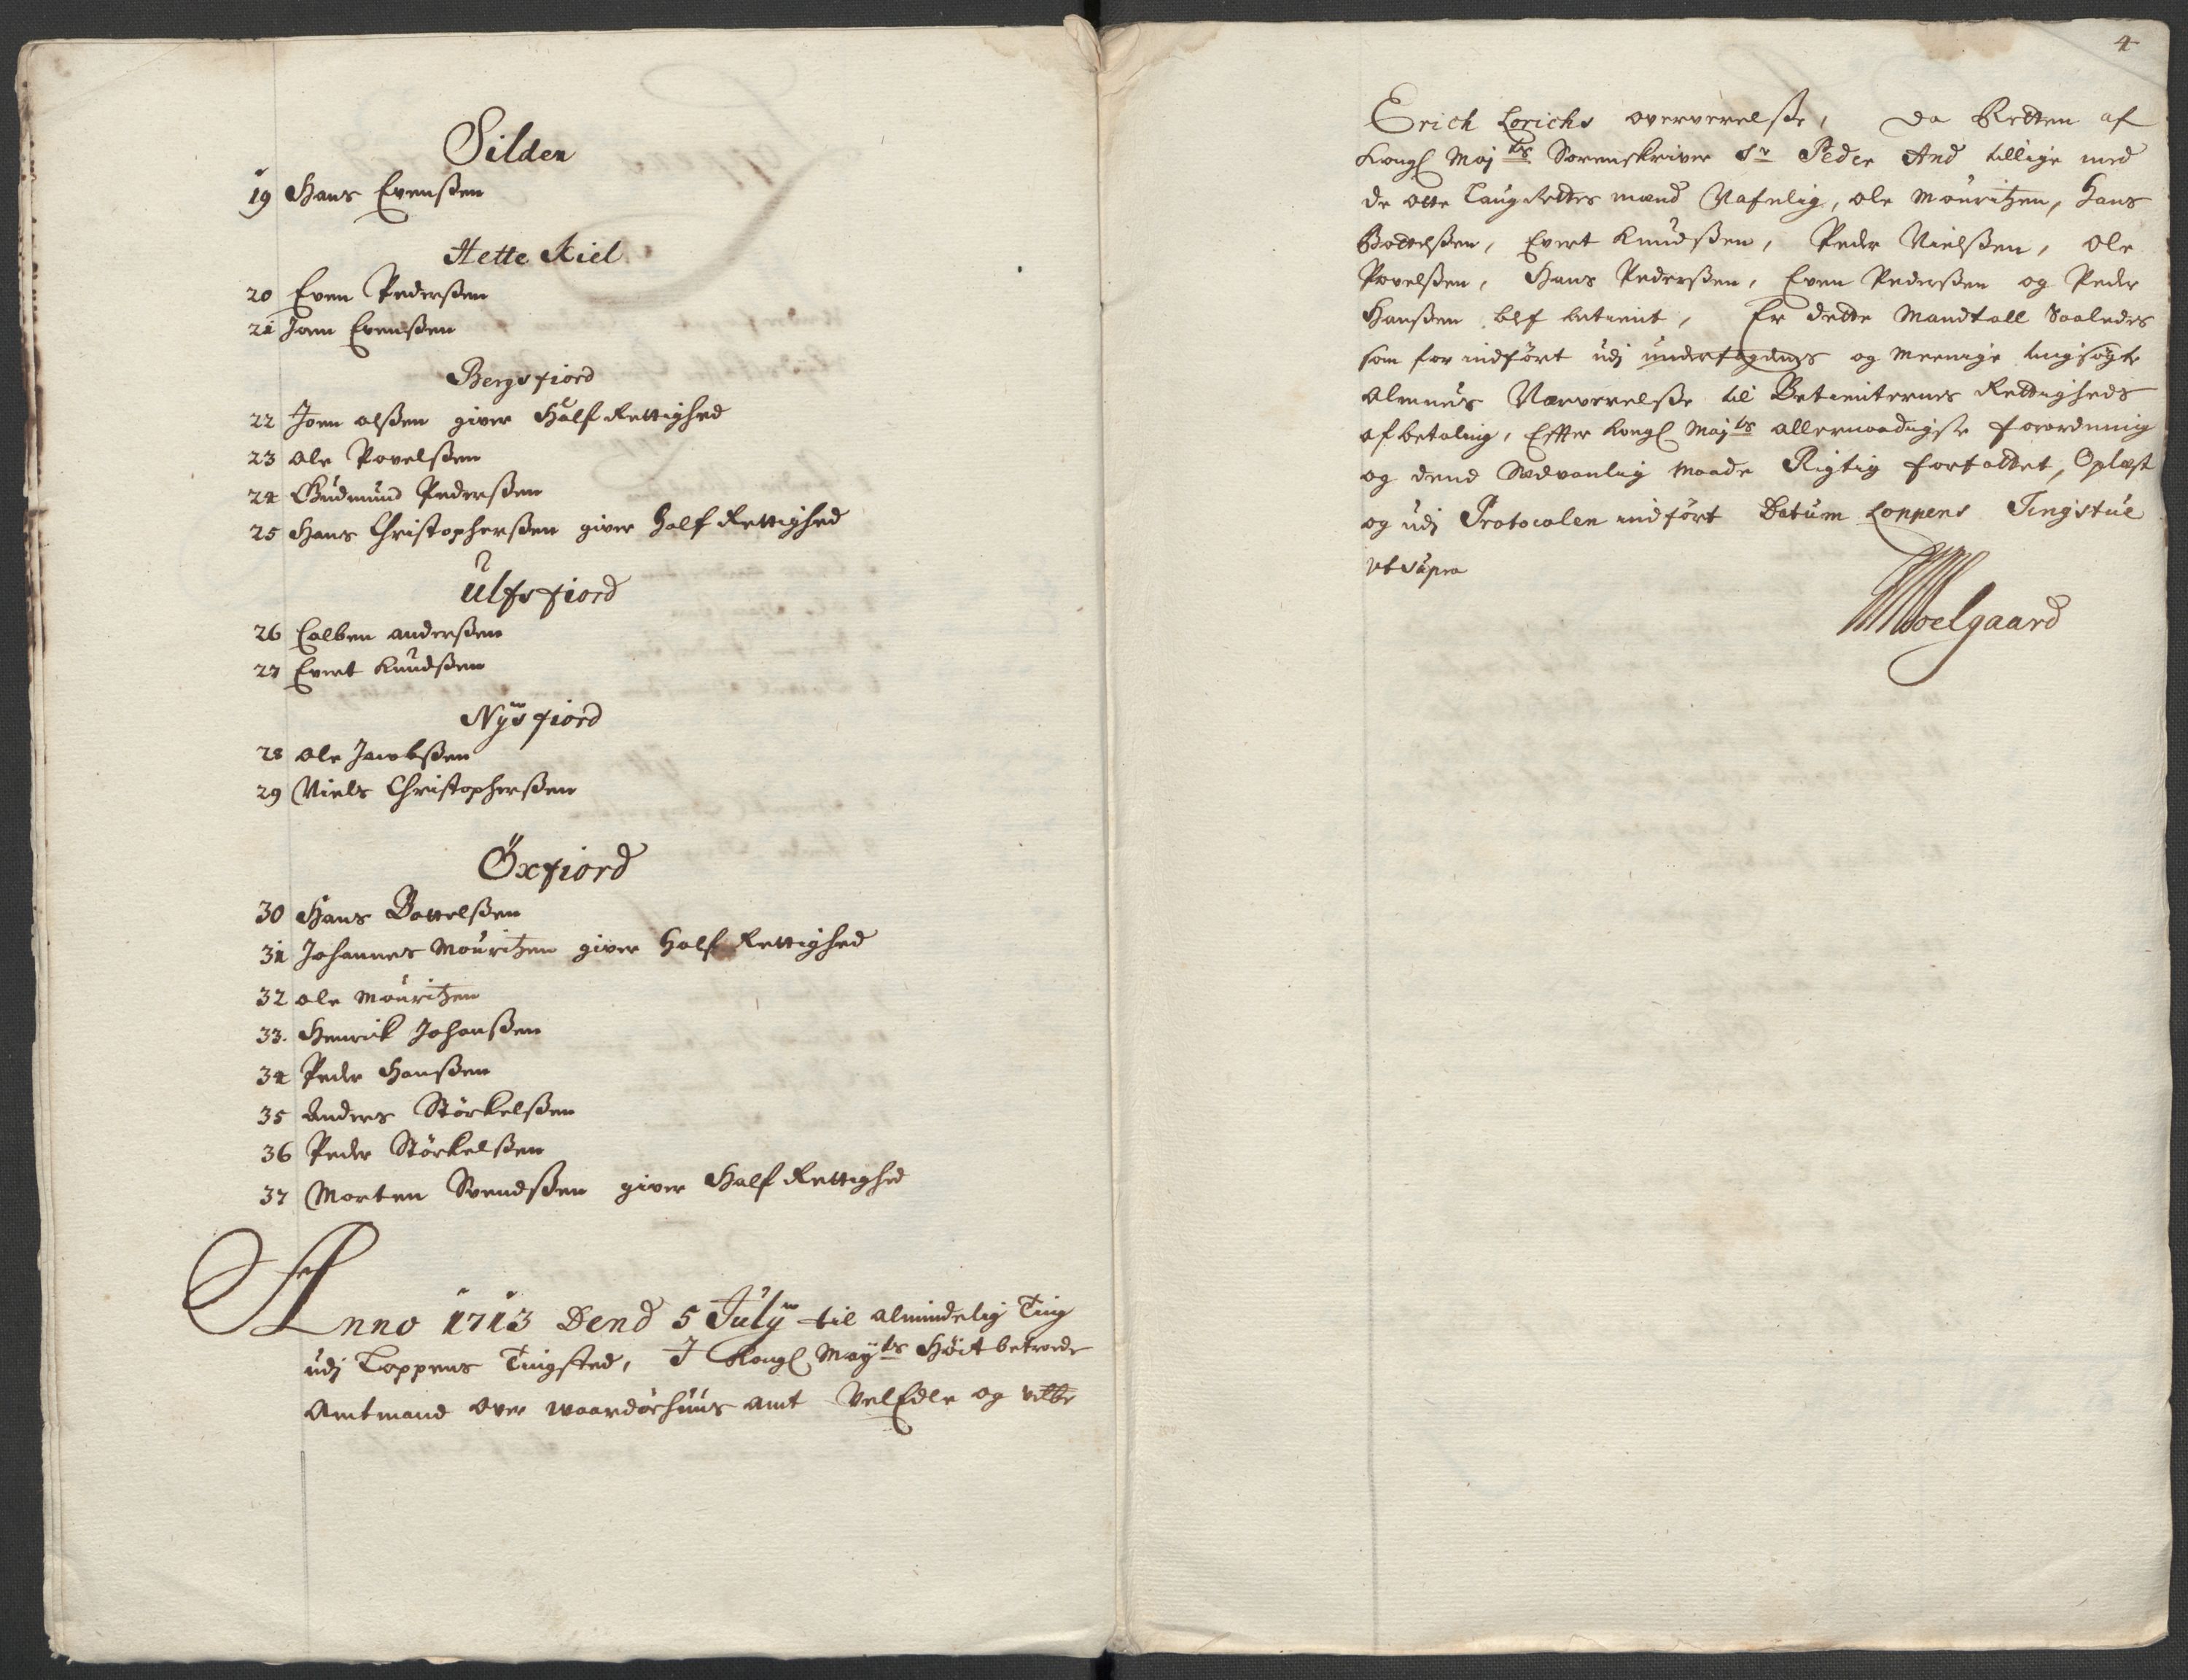 Silden
19 Hans Evenßen
Hette Kiel
20 Even Pederßen
21 Joen Evenßen
Bergsfiord
22 Joen olßen giver Half Rettighed
23 Ole Povelßen
24 Gudmund Pederßen
25 Hans Christopherßen giver Half Rettighed
Ulfsfiord
26 Colben anderßen
27 Evert Knudßen
Nÿsfiord
28 Ole Jacobßen
29 Niels Christopherßen
Öxfiord
30 Hans Bottelßen
31 Johannes Mouritzen giver Half Rettighed
32 Ole Mouritzen
33. Henrick Johanßen
34 Peder Hanßen
35 Anders Störkelßen
36 Peder Störkelßen
37 Morten Svendßen giver Half Rettighed
Anno 1713 Dend 5 Julÿ til almindelig Ting
udj Loppens Tingsted, J Kongl Maÿts Höit betroede
Amtmand over waardöehuus amt VelEdle og vitte
4
Erich Lorichs oververelße, da Retten af
Kongl Majts Sorenskriver Sr Peder And tillige med
de otte LaugRettes mænd Nafnlig, Ole Mouritzen, Hans
Bottelßen, Evert Knudßen, Peder Nielßen, Ole
Povelßen, Hans Pederßen, Even Pederßen og Peder
Hanßen blef betient, Er dette Mandtall Saaledes
som for indført udj undertegnedes og Meenige tingsögte
Almues Nærverelße til Betienternes Rettigheds
afbetaling, Effter Kongl Majts allernaadigste forordning
og dend Sædvanlig Maade Rigtig forfattet, Oplæst
og udj Protocolen indfört Datum Loppens Tingstue
ut supra
Moelgaard